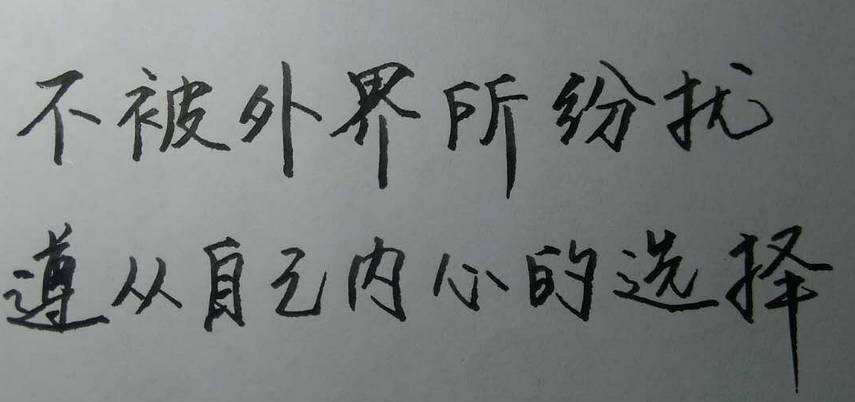 不被外界所纷扰
遵从自己内心的选择